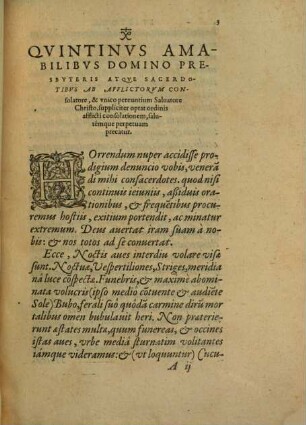 3
QVINTINVS AMA-
BILIBVS DOMINO PRE-
SBYTERIS ATQVE SACERDO-
TIBVS AB AFFLICTORVM CON-
solatore, & vnico pereuntium Saluatore
Christo, suppliciter optat ordinis
afflicti consolationem, salu-
témque perpetuam
precatur.
HOrrendum nuper accidisse pro-
digium denuncio vobis, venerā
di mihi consacerdotes. quod nisi
continuis ieiuniis, aßiduis orа-
tionibus, & frequētibus procu-
remus hostiis, exitium portendit, ac minatur
extremum. Deus auertat iram suam à no-
bis: & nos totos ad se conuertat.
Ecce, Noctis aues interdiu volare visæ
sunt. Noctuæ, Vespertiliones, Striges, meridia
na luce cōspectæ. Funebris, & maximè abomi-
nata volucris (ipso medio cōtuente & audiēte
Sole) Bubo, ferali suo quōdā carmine dirū mor
talibus omen bubulauit heri. Non præterie-
runt æstates multæ, quum funereas, & occines
istas aues, vrbe mediâ sturnatim volitantes
iámque videramus: & (vt loquuntur) Cucu-
A ij